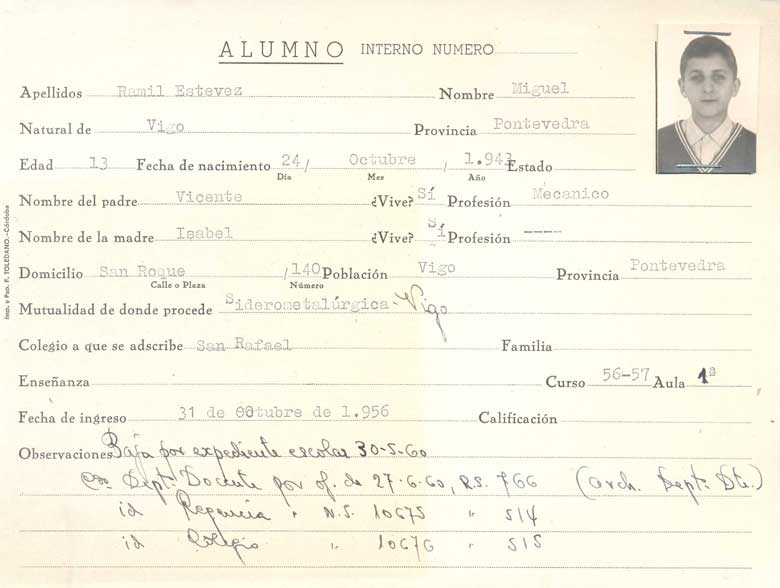 ALUMNO INTERNO NUMERO
Apellidos Ramil Estevez Nombre Miguel
Natural de Vigo Provincia Pontevedra
Edad 13 Fecha de nacimiento 24 / Octubre / 1.943 Estado
Día Mes Año
Nombre del padre Vicente ¿Vive? Sí Profesión Mecanico
Nombre de la madre Isabel ¿Vive? Sí Profesión ----
Domicilio San Roque / 140 Población Vigo Provincia Pontevedra
Calle o Plaza Número
Mutualidad de donde procede Siderometalúrgica-Vigo
Colegio a que se adscribe San Rafael Familia
Enseñanza Curso 56-57 Aula 1ª
Fecha de ingreso 31 de Octubre de 1.956 Calificación
Observaciones Baja por expediente escolar 30-5-60
Dept: Docente por of. de 27-6-60, R.S. 766 (arch. Dept: Dte.)
id Regencia " N.S. 10675 " 514
id Colegio " 10676 " 515
Imp. y Pap. F. TOLEDANO.-Córdoba